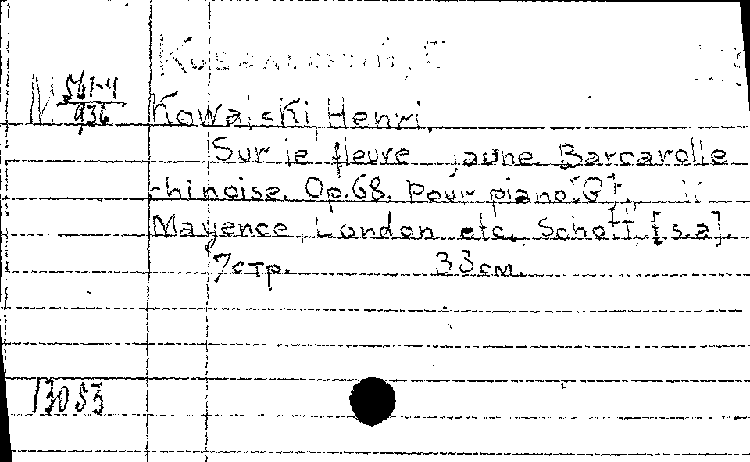 М 561-4
936
Kowalski, Henri.
Sur le fleuve jaune. Barcarolle
chinoise. Op.68. Pour piano. [G].
Mayence, London etc, Schott, [s.a].
7стр. 33см.
13083